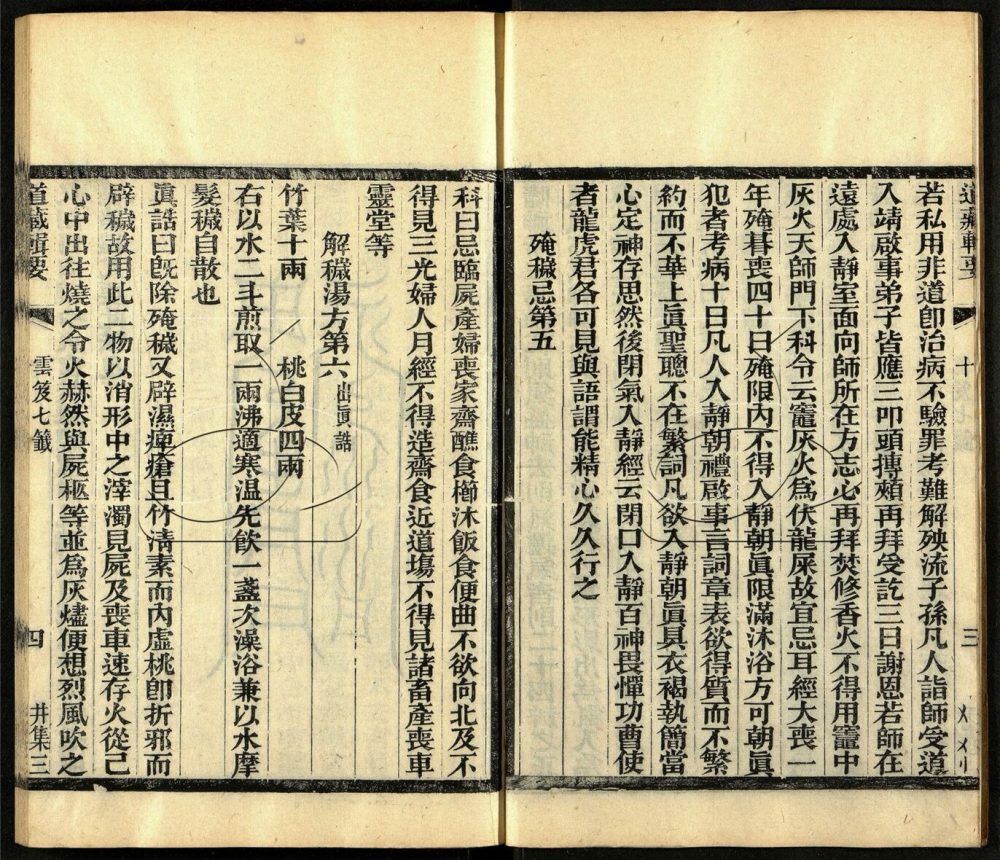 若私用非道卽治病不驗罪考難解殃流子孫凡人詣師受道
入靖啟事弟子皆應三叩頭摶頰再拜受訖三日謝恩若師在
遠處入靜室面向師所在方志心再拜焚修香火不得用竈中
灰火天師門下科令云竈灰火爲伏龍屎故宜忌耳經大喪一
年殗朞喪四十日殗限內不得入靜朝眞限滿沐浴方可朝眞
犯者考病十日凡人入靜朝禮啟事言詞章表欲得質而不繁
約而不華上眞聖聰不在繁詞凡欲入靜朝眞具衣褐執簡當
心定神存思然後閉氣入靜經云閉口入靜百神畏憚功曹使
者龍虎君各可見與語謂能精心久久行之
殗穢忌第五
科曰忌臨屍產婦喪家齋醮食櫛沐飯食便曲不欲向北及不
得見三光婦人月經不得造齋食近道塲不得見諸畜產喪車
靈堂等
解穢湯方第六出眞誥
竹葉十兩 桃白皮四兩
右以水二斗煎取一兩沸適寒温先飮一盞次澡浴兼以水摩
髮穢自散也
眞誥曰旣除殗穢又辟濕痺瘡且竹淸素而內虛桃卽折邪而
辟穢故用此二物以消形中之滓濁見屍及喪車速存火從己
心中出往燒之令火赫然與屍柩等並爲灰燼便想烈風吹之
道藏輯要 雲笈七籤 四 井集三